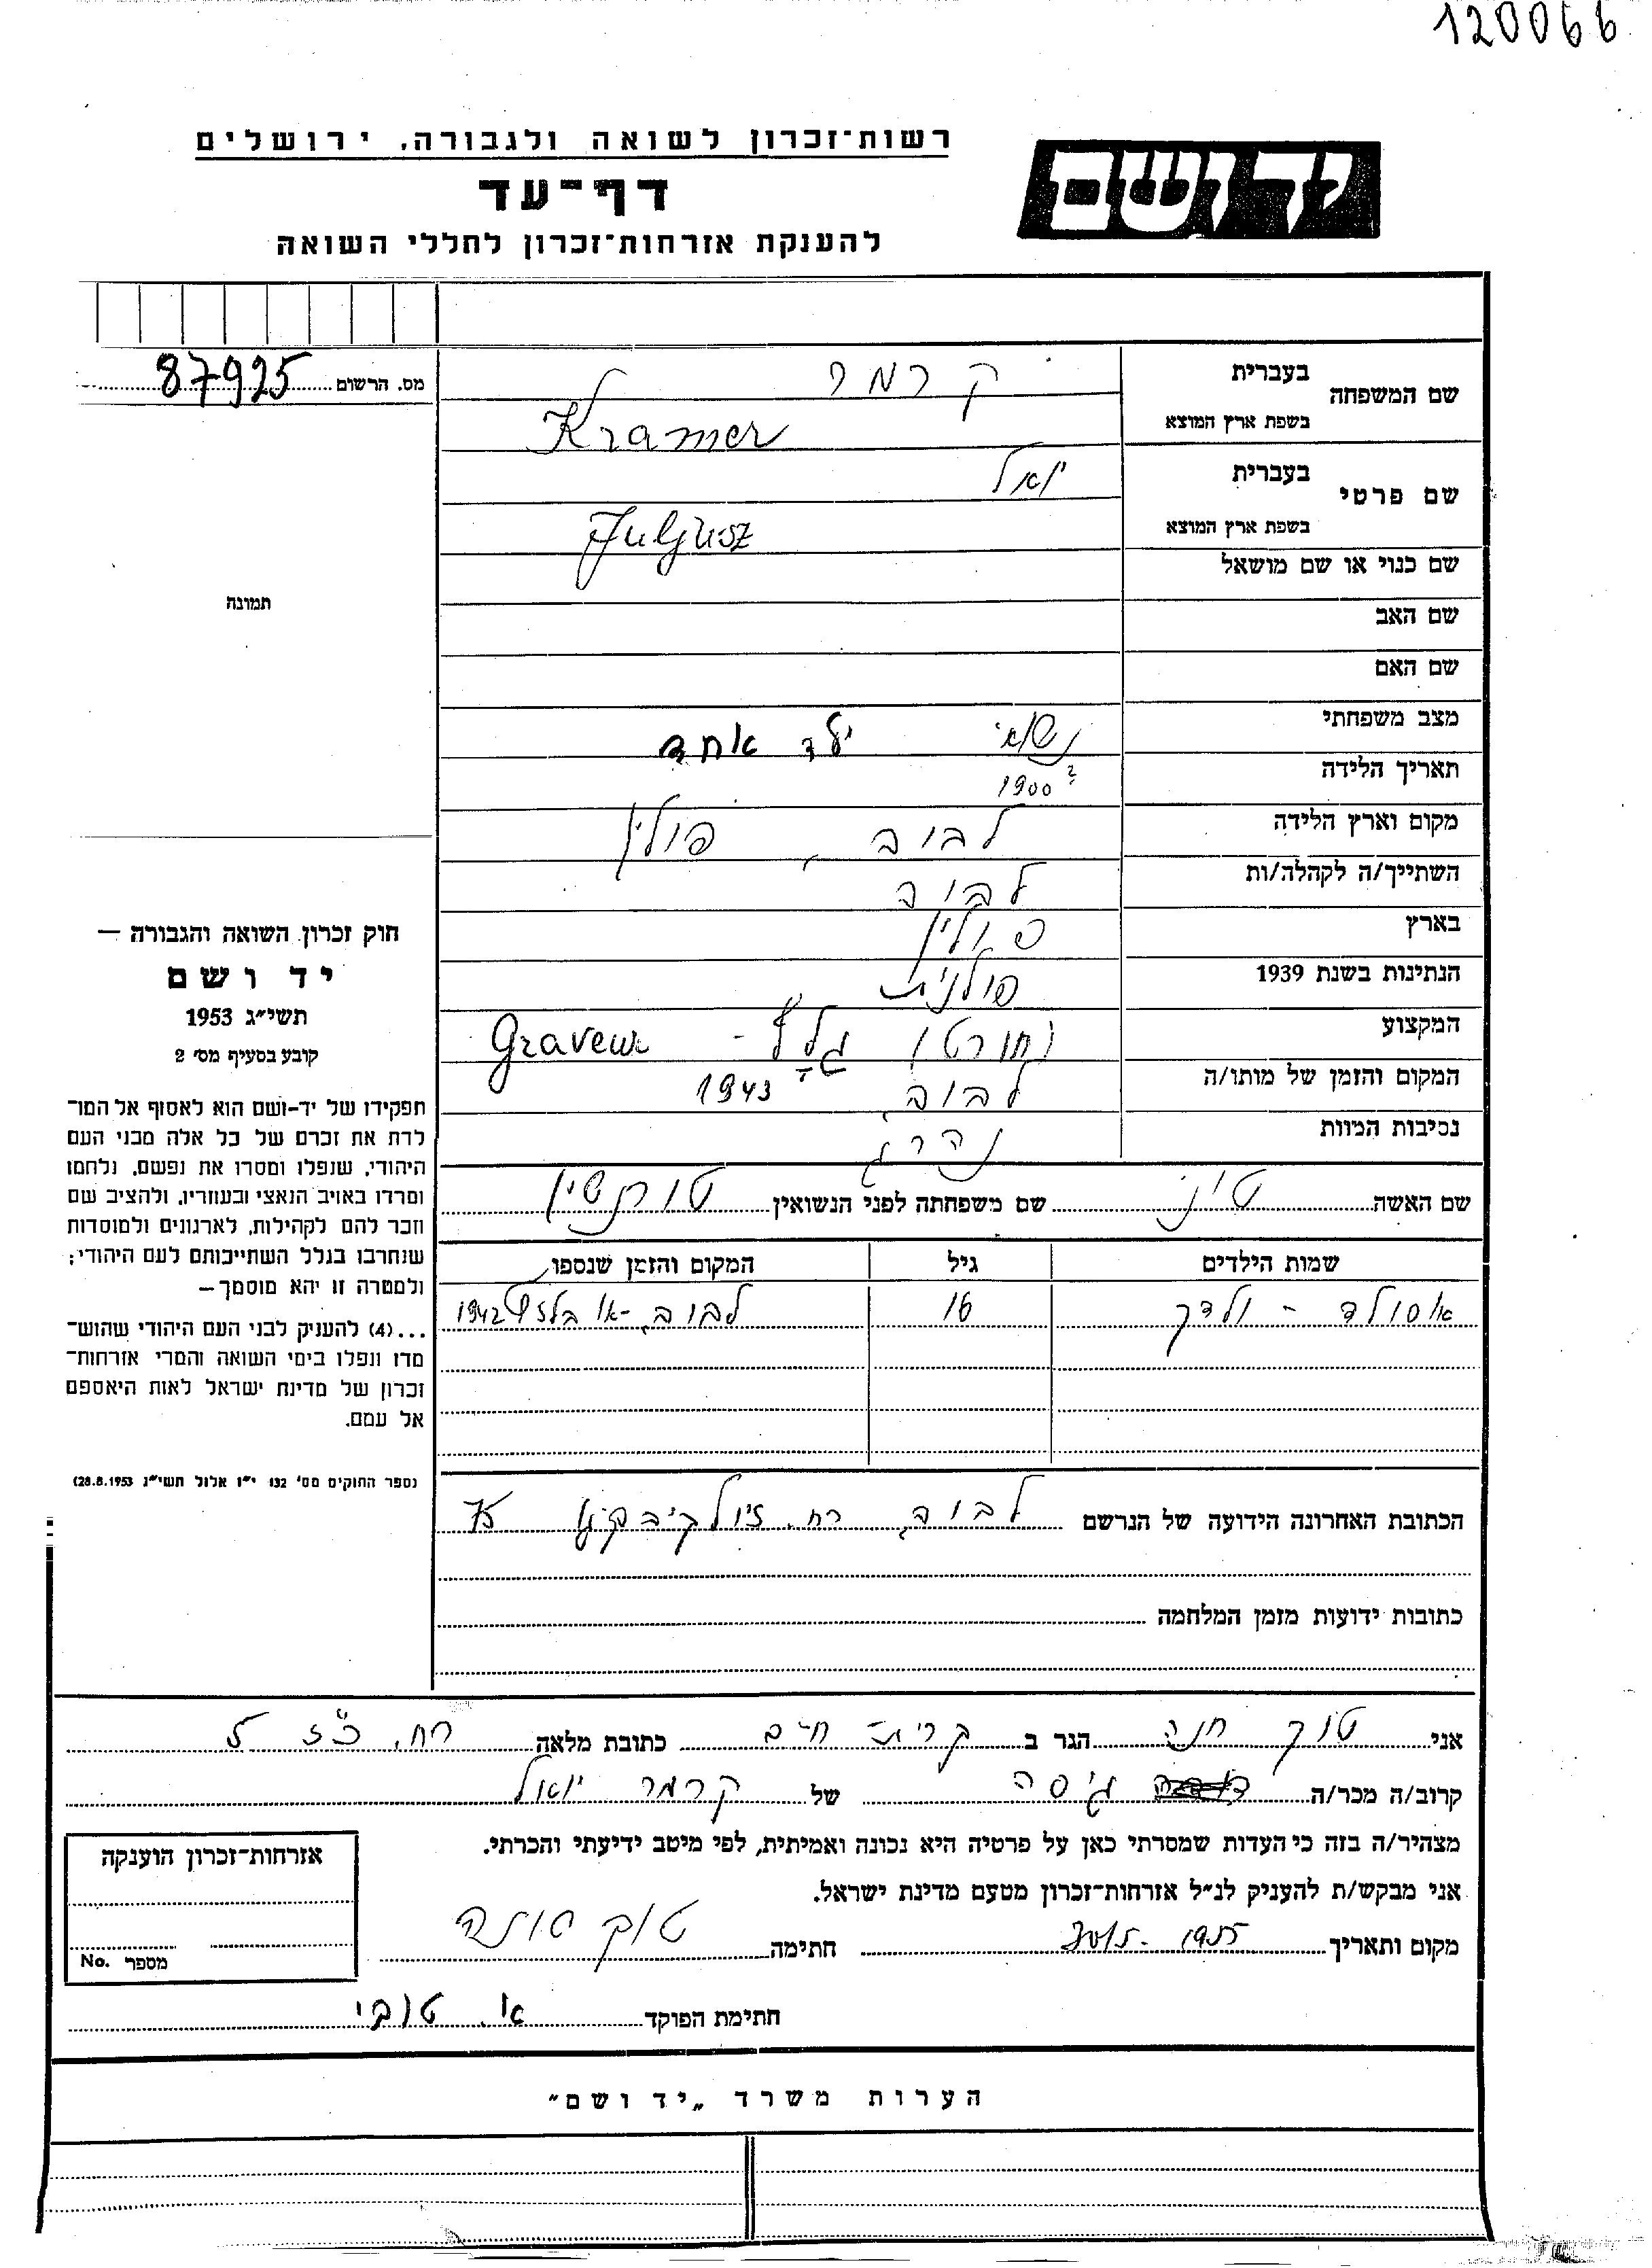 120066
רשות־זכרון לשואה ולגבורה, ירושלים
יד ושם
דף־עד
להענקת אזרחות־זכרון לחללי השואה
מס. הרשום 87925
שם המשפחה בעברית קרמר
בשפת ארץ המוצא Kramer
שם פרטי בעברית יואל
בשפת ארץ המוצא Juljusz
שם כנוי או שם מושאל
תמונה
שם האב
שם האם
מצב משפחתי נשוי ילד אחד
תאריך הלידה 1900 ?
מקום וארץ הלידה לבוב, פולין
השתייך/ה לקהלה/ות לבוב
בארץ פולין
הנתינות בשנת 1939 פולנית
המקצוע (חורט) גלף - Graveur
המקום והזמן של מותו/ה לבוב, 1943
נסיבות המוות נהרג
שם האשה טוני שם משפחתה לפני הנשואין
שמות הילדים גיל המקום והזמן שנספו
16 לבוב, או בלזץ 1942
הכתובת האחרונה הידועה של הנרשם לבוב, רח.
כתובות ידועות מזמן המלחמה
חוק זכרון השואה והגבורה —
יד ושם
תשי״ג 1953
קובע בסעיף מס׳ 2
תפקידו של יד-ושם הוא לאסוף אל המו־
לדת את זכרם של כל אלה מבני העם
היהודי, שנפלו ומסרו את נפשם, נלחמו
ומרדו באויב הנאצי ובעוזריו, ולהציב שם
וזכר להם לקהילות, לארגונים ולמוסדות
שנחרבו בגלל השתייכותם לעם היהודי;
ולמטרה זו יהא מוסמך—
...(4) להעניק לבני העם היהודי שהוש־
מדו ונפלו בימי השואה והמרי אזרחות־
זכרון של מדינת ישראל לאות היאספם
אל עמם.
(ספר החוקים מס׳ 132 י״ז אלול תשי״ג 28.8.1953)
אני טוק חנה הגר ב קרית חיים כתובת מלאה רח. כ״ז 5
קרוב/ה מכר/ה גיסה של קרמר יואל
מצהיר/ה בזה כי העדות שמסרתי כאן על פרטיה היא נכונה ואמיתית, לפי מיטב ידיעתי והכרתי.
אני מבקש/ת להעניק לנ״ל אזרחות־זכרון מטעם מדינת ישראל.
מקום ותאריך 1955 חתימה טוק חנה
אזרחות־זכרון הוענקה
מספר No.
חתימת הפוקד א. טובי
הערות משרד „יד ושם״